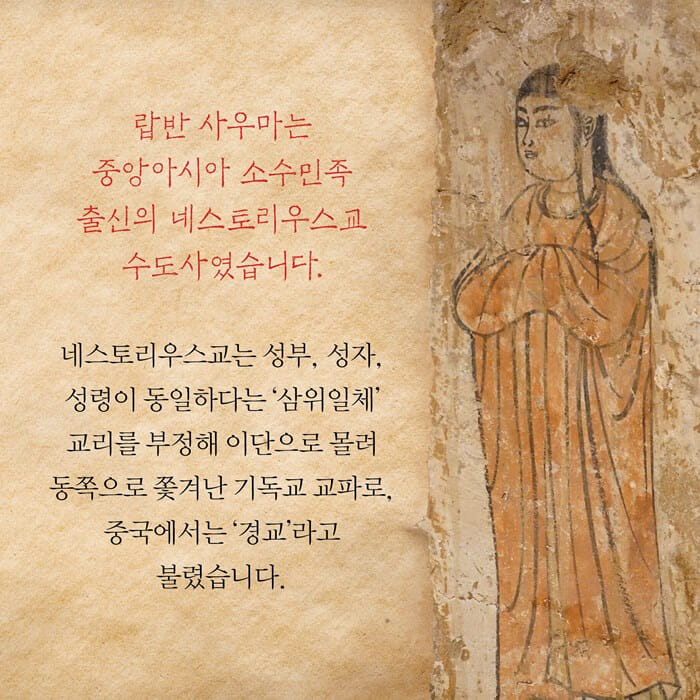 랍반 사우마는
중앙아시아 소수민족
출신의 네스토리우스교
수도사였습니다.
네스토리우스교는 성부, 성자,
성령이 동일하다는 ‘삼위일체’
교리를 부정해 이단으로 몰려
동쪽으로 쫓겨난 기독교 교파로,
중국에서는 ‘경교’라고
불렸습니다.